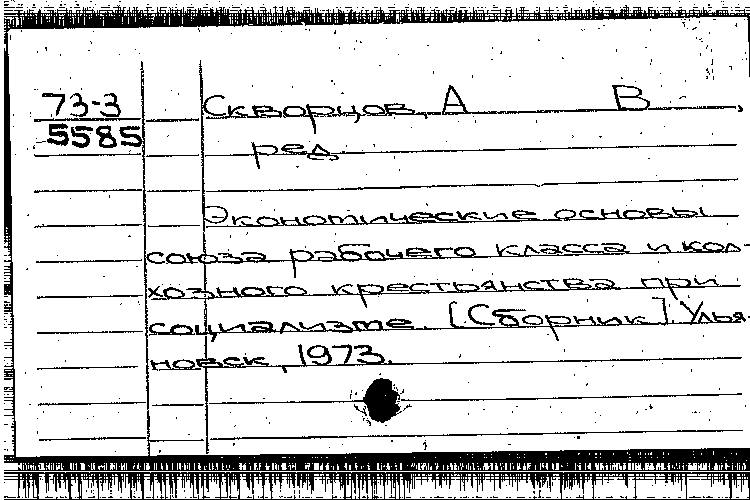 73-3 Скворцов, А В,
5585 ред.
Экономические основы
союза рабочего класса и кол-
хозного крестьянства при
социализме. [Сборник]. Улья-
новск, 1973.